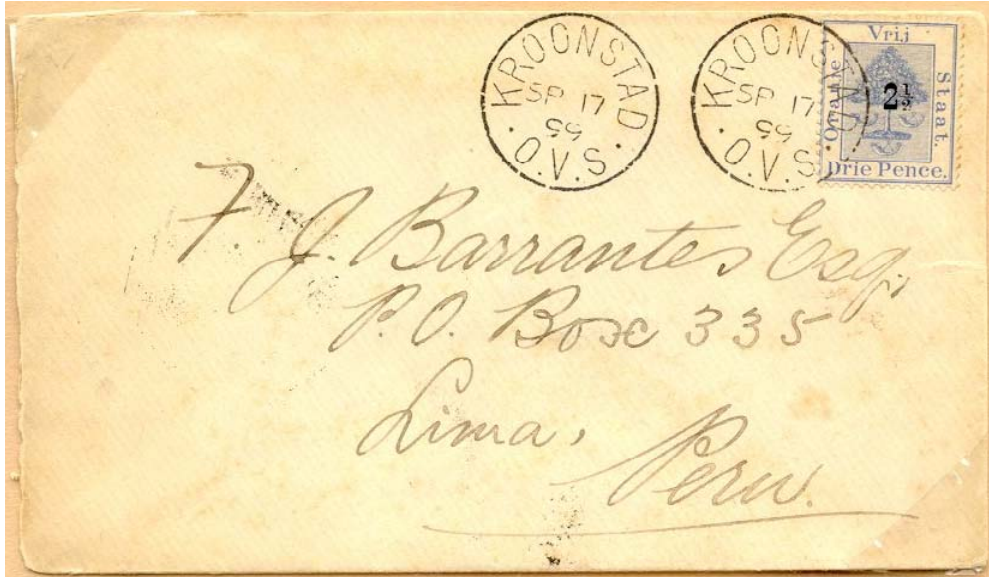 KROONSTAD
SP 17
99
O.V.S.
KROONSTAD
SP 17
99
O.V.S.
Vrij
Oranje
Staat.
2½
Drie Pence.
F. J. Barrantes Esq,
P.O. Box 335
Lima,
Peru.